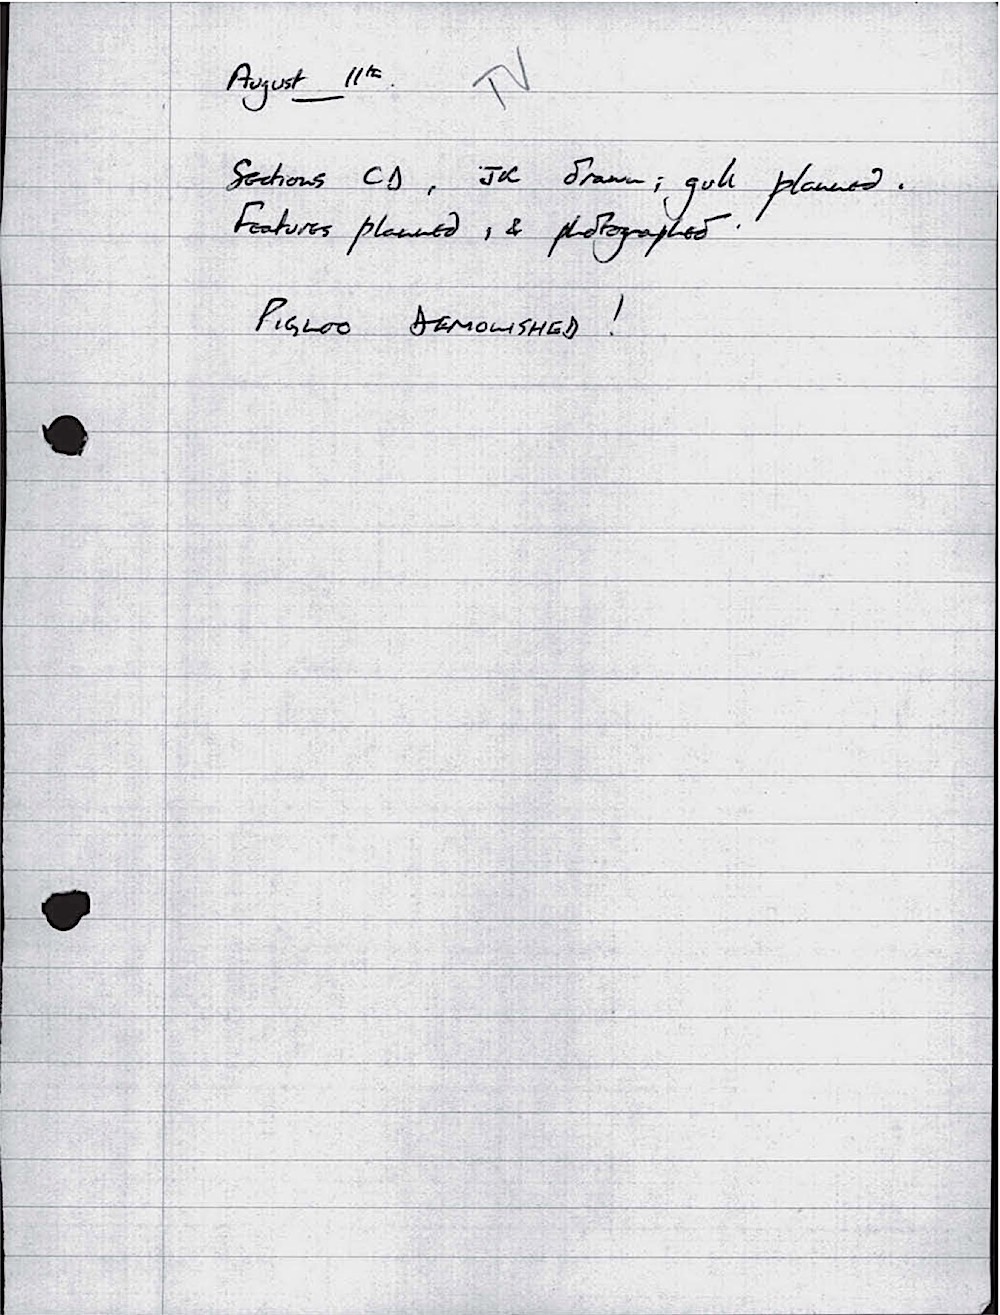 August 11th.
TV
Sections CD, JK drawn; gull planned.
Features planned, & photographed.
PIGLOO DEMOLISHED!